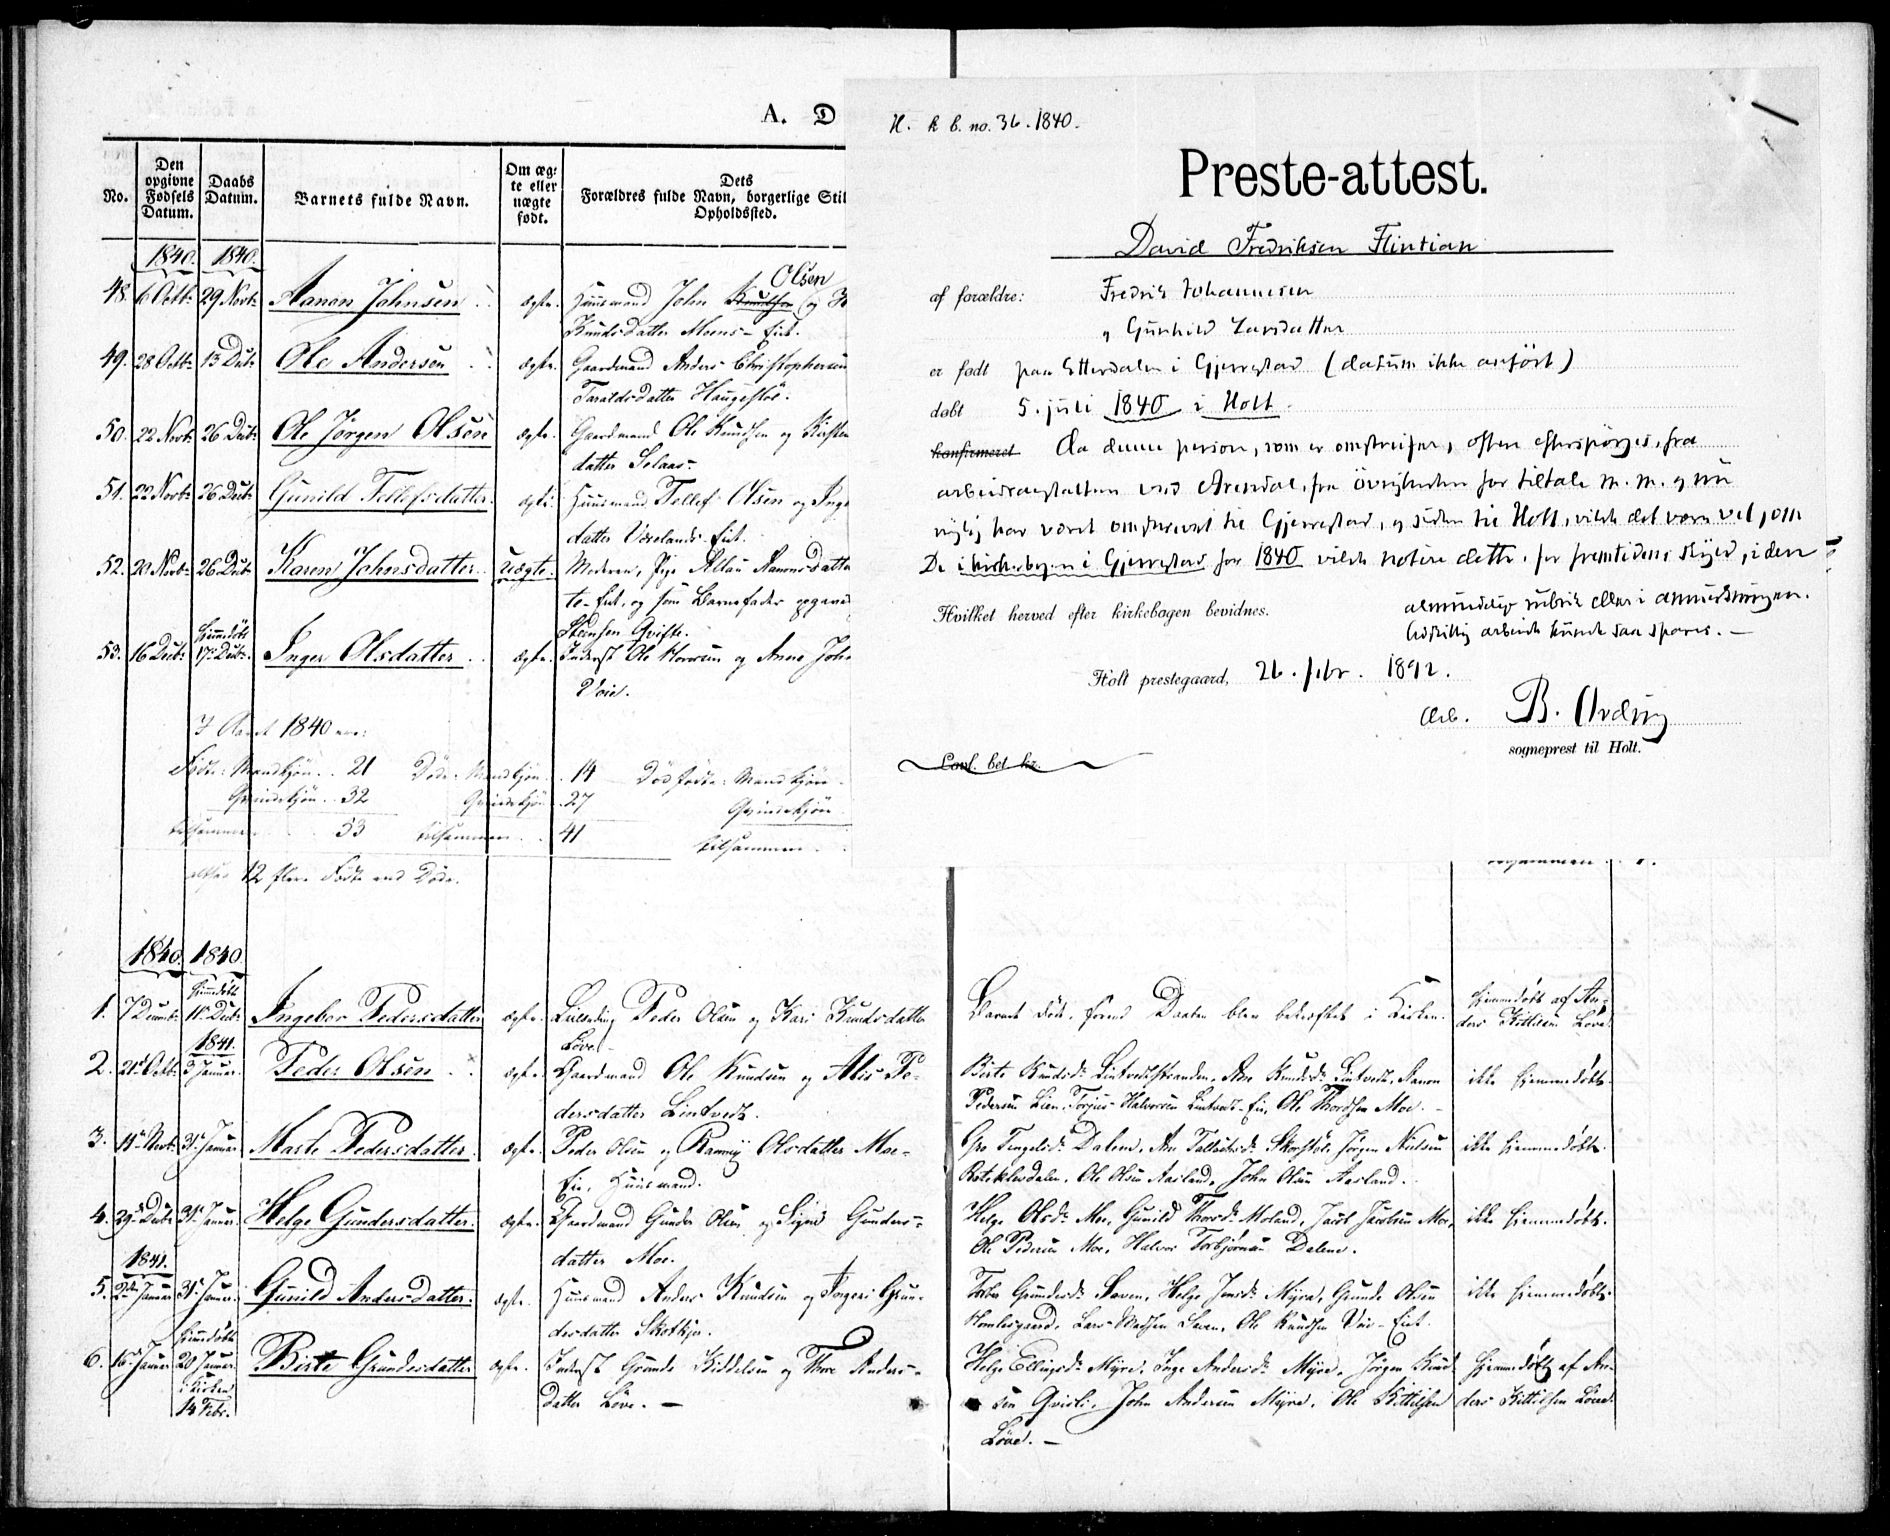 A. D
No.
Den opgivne Fødsels Datum.
Daabs Datum.
Barnets fulde Navn.
Om æg-
te eller
uægte
født.
Dets
Forældres fulde Navn, borgerlige Stil
Opholdssted.
1840. 1840.
48. 6 Octb: 29 Novb: Aanon Johnsen ægte. Huusmand John Knudsen Olsen og
Knudsdatter Moens-Eiet.
49. 28 Octb: 13 Decb: Ole Andersen ægte. Gaardmand Anders Christophersen
Taraldsdatter Haugestøl.
50. 22 Novb: 26 Decb: Ole Jørgen Olsen ægte. Gaardmand Ole Knudsen og Kirsten
datter Selaas.
51. 22 Novb: 26 Decb: Gunild Tellefsdatter. ægte. Huusmand Tellef Olsen og Inge
datter Eiet.
52. 20 Novb: 26 Decb: Karen Johnsdatter Uægte. Moderen, Pige Aanonsdatter
te-Eiet, og som Barnefader opgavs
Steensen Qviste.
53. 16 Decb: Hjemmedøbt 17 Decb: Inger Olsdatter ægte. Inderst Ole og Anne Joh
Voie.
I Aaret 1840 ere:
Fødte: Mandkjøn 21 Døde: Mandkjøn 14 Dødfødte: Mandkjøn
Qvindekjøn 32 Qvindekjøn 27 Qvindekjøn
tilsammen 53 tilsammen 41 tilsammen
altsaa 12 flere Fødte end Døde.
H. k b. no. 36. 1840.
Preste-attest.
David Fredriksen Flintian
af forældre: Fredrik Johannesen
og Gunhild Larsdatter
er født paa Etterdalen i Gjerrestad (datum ikke anført)
døbt 5. juli 1840 i Holt.
konfirmeret Da denne person, som er omstreifer, oftere efterspørges, fra
arbeidsanstalten ved Arendal, fra övrigheden for tiltale m. m. og nu
nylig har været omskrevet til Gjerrestad, og siden til Holt, vilde det være vel, om
De i kirkebogen i Gjerrestad for 1840 vilde notere dette, for fremtidens skyld, i den
almindelige rubrik eller i anmerkningen.
Hvilket herved efter kirkebogen bevidnes.
Udskillig arbeide kunde saa spares. —
Holt prestegaard, 26. febr. 1892.
Ærb. B.
sogneprest til Holt.
Lovl. bet kr.
tilsammen
1840. 1840.
1. 7 Decemb: Hjemmedøbt 11 Decb: Ingebor Pedersdatter ægte. Peder Olsen og Kari Knudsdatter
Løve.
Barnet døde, forend Daaben blev bekræftet i Kirken. Hjemmedøbt af An-
ders Kittilsen Løve.
1841.
2. 21 Octb: 3 Januar. Peder Olsen ægte. Gaardmand Ole Knudsen og Alis Pe-
dersdatter Lintvedt.
Birte Knudsd: Lintvedtstranden, Ane Knudsd: Lintvedt, Aanon ikke hjemmedøbt.
Pedersen Lien, Torjus Halvorsen Lintvedt-Eie, Ole Thordsen Moe.
3. 14 Novb: 31 Januar Marte Pedersdatter. ægte. Peder Olsen og Ramnij Olsdatter Moe-
Eie, Huusmand.
Gro Tengelsd: Dalene, Ane Tallaksd: Jørgen Nielsen ikke hjemmedøbt.
Ole Olsen Aasland, John Olsen Aasland.
4. 29 Decb: 31 Januar. Helge Gundersdatter. ægte. Gaardmand Gunder Olsen og Signe Gunders-
datter Moe.
Helge Olsd: Moe, Gunild Thorsd: Moland, Jacob Jacobsen Moe, ikke hjemmedøbt.
Ole Pedersen Moe, Halvor Torbjørnsen Dalene.
1841.
5. 2 Januar 31 Januar. Gunild Andersdatter. ægte. Huusmand Anders Knudsen og Inger Gun-
dersdatter
Gundersd: Saven, Helge Jensd: Myra, Gunde Olsen ikke hjemmedøbt.
Lars Madsen Saven, Ole Knudsen Voie-Eiet.
6. 16 Januar Hjemmedøbt 20 Januar. i Kirken 14 Febr. Birte Grundesdatter ægte. Inderst Grunde Kiddelsen og Thore Anders-
datter Løve. —
Helge Ellingsd: Myre, Inge Andersd: Myre, Jørgen Knud- Hjemmedøbt af An-
sen Qvisli, John Andersen Myre, Ole Kittilsen ders Kittilsen Løve.
Løve. —